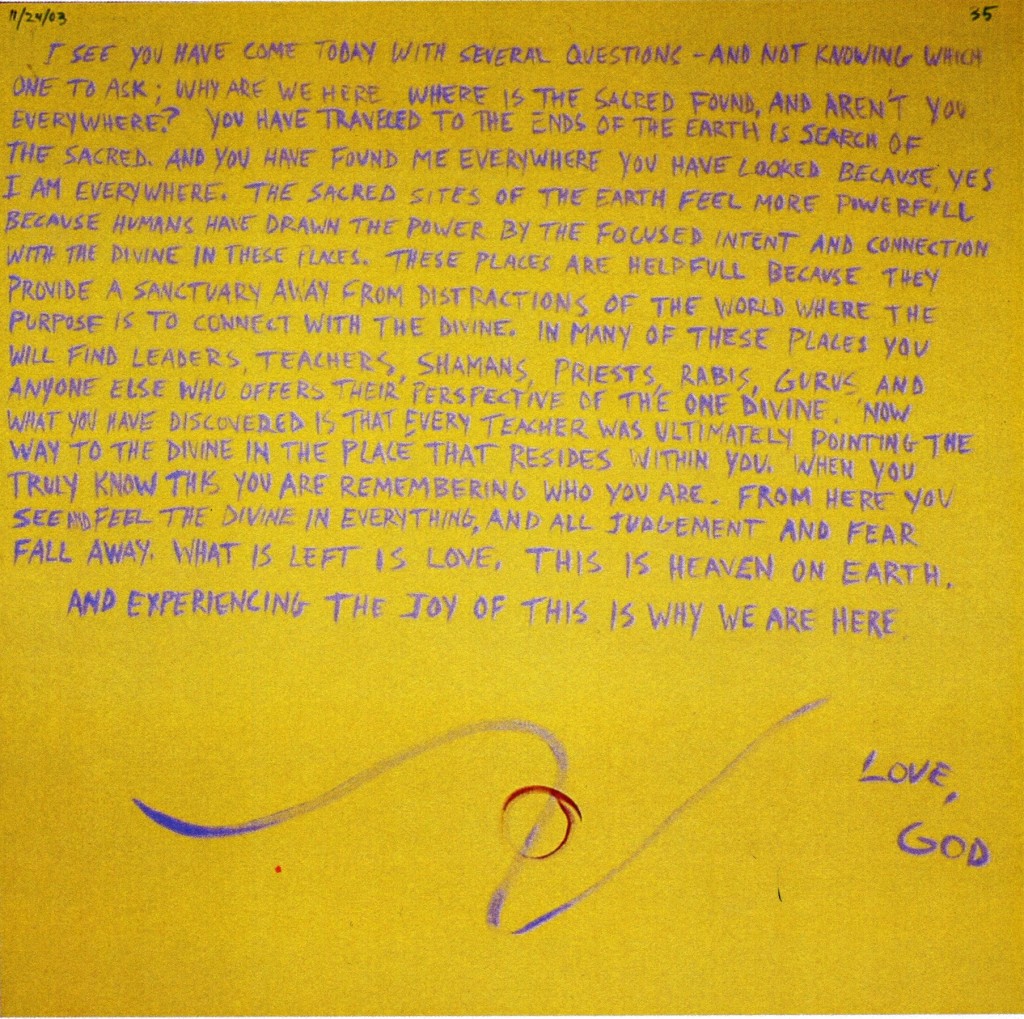 11/24/03
35
I SEE YOU HAVE COME TODAY WITH SEVERAL QUESTIONS - AND NOT KNOWING WHICH
ONE TO ASK; WHY ARE WE HERE WHERE IS THE SACRED FOUND, AND AREN'T YOU
EVERYWHERE? YOU HAVE TRAVELED TO THE ENDS OF THE EARTH IS SEARCH OF
THE SACRED. AND YOU HAVE FOUND ME EVERYWHERE YOU HAVE LOOKED BECAUSE, YES
I AM EVERYWHERE. THE SACRED SITES OF THE EARTH FEEL MORE POWERFULL
BECAUSE HUMANS HAVE DRAWN THE POWER BY THE FOCUSED INTENT AND CONNECTION
WITH THE DIVINE IN THESE PLACES. THESE PLACES ARE HELPFULL BECAUSE THEY
PROVIDE A SANCTUARY AWAY FROM DISTRACTIONS OF THE WORLD WHERE THE
PURPOSE IS TO CONNECT WITH THE DIVINE. IN MANY OF THESE PLACES YOU
WILL FIND LEADERS, TEACHERS, SHAMANS, PRIESTS, RABIS, GURUS AND
ANYONE ELSE WHO OFFERS THEIR PERSPECTIVE OF THE ONE DIVINE. NOW
WHAT YOU HAVE DISCOVERED IS THAT EVERY TEACHER WAS ULTIMATELY POINTING THE
WAY TO THE DIVINE IN THE PLACE THAT RESIDES WITHIN YOU. WHEN YOU
TRULY KNOW THIS YOU ARE REMEMBERING WHO YOU ARE. FROM HERE YOU
SEE AND FEEL THE DIVINE IN EVERYTHING, AND ALL JUDGEMENT AND FEAR
FALL AWAY. WHAT IS LEFT IS LOVE. THIS IS HEAVEN ON EARTH.
AND EXPERIENCING THE JOY OF THIS IS WHY WE ARE HERE
LOVE,
GOD